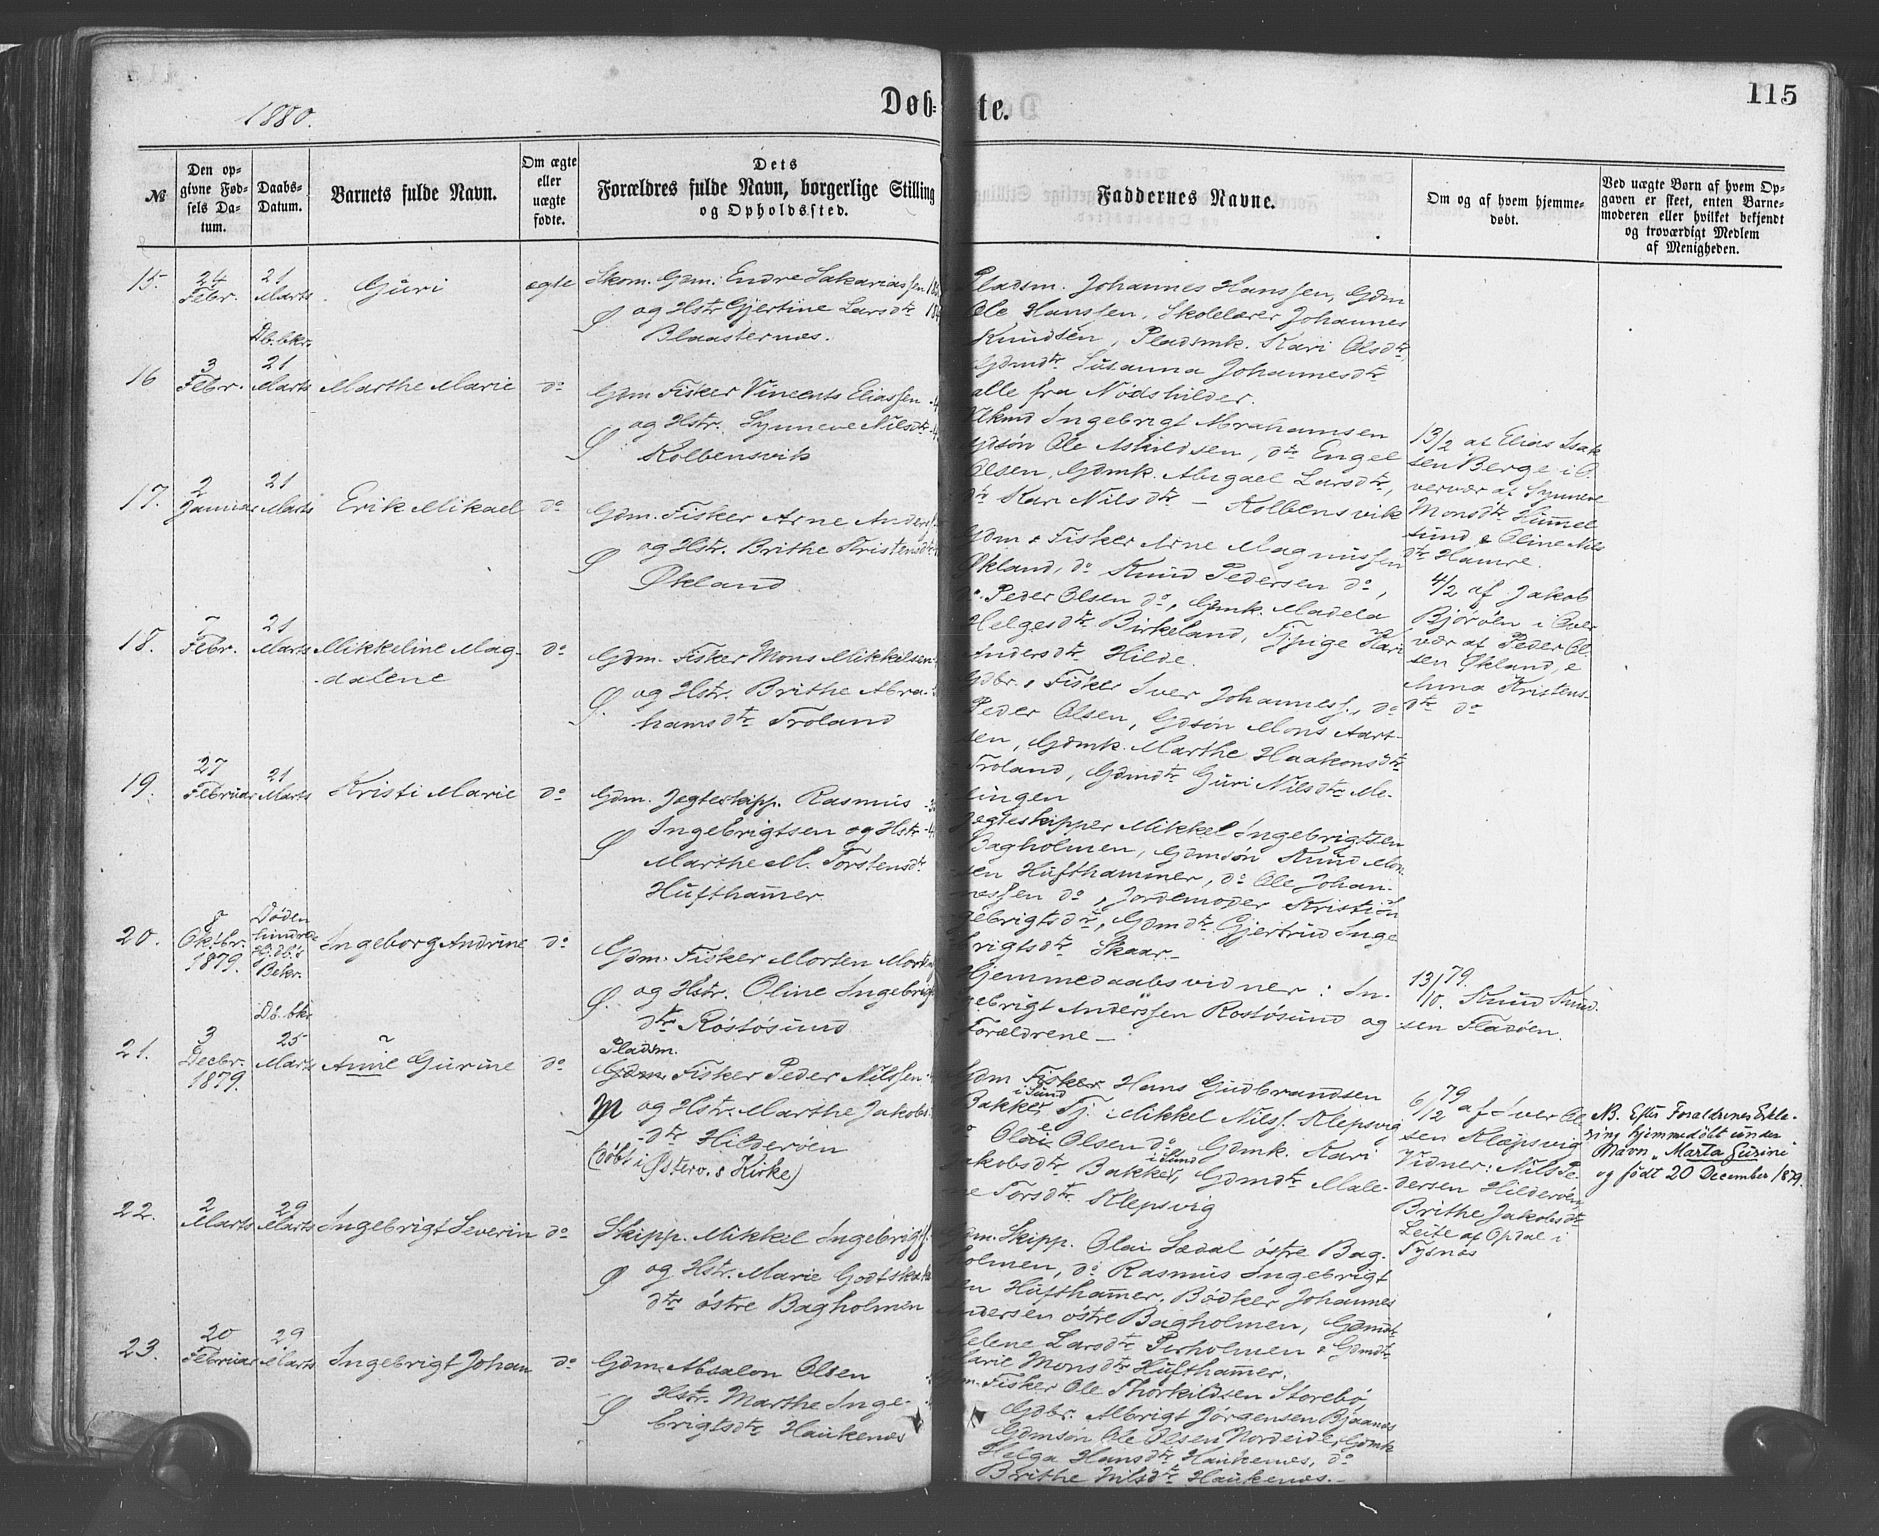 1880.
Døb-
te.
115
№
Den op-
givne Fød-
sels Da-
tum.
Daabs-
Datum.
Barnets fulde Navn.
Om ægte
eller
uægte
fødte.
Dets
Forældres fulde Navn, borgerlige Stilling
og Opholdssted.
Faddernes Navne.
Om og af hvem hjemme-
døbt.
Ved uægte Børn af hvem Op-
gaven er skeet, enten Barne-
moderen eller hvilket bekjendt
og troværdigt Medlem
af Menigheden.
15. 24 Febr. 21 Marts Guri ægte
Skom. Gdm. Endre Sakariassen
Ø og Hstr Gjertine Larsdtr
Blaasternes.
Pladsm. Johannes Hanssen, Gdm
Ole Hanssen, Skolelærer Johannes
Knudsen, Pladsmk. Kari Olsdtr
Gdmdtr Susanna Johannesdtr
alle fra Nødshilder.
Db. bkr.
16 3 Febr. 21 Marts Marthe Marie do
Gdm Fisker Vincents Eliassen
Ø og Hstr. Synneve Nilsdtr
Kolbensvik
Ingebrigt Abrahamsen
Gdsøn Ole Askildsen, dtr Engel
Olsen, Gdmk. Abigael Larsdtr,
dtr Kari Nilsdtr – Kolbensvik
13/2 af Elias Isak-
sen Berge i O-
vervær af Synneve
Monsdtr Himmel-
sund & Oline Nils
dtr Hamre.
17. 2 Januar 21 Marts Erik Mikael do
Gdm. Fisker Arne Anders
Ø og Hstr. Brithe Kristensdtr
Økland
Gdm & Fisker Arne Magnussen
Økland, do Knud Pedersen do,
do Peder Olsen do, Gdmk. Madela
Helgesdtr Birkeland, Tj pige Kari
Andersdtr Hilde.
4/2 af Jakob
Bjørøen i Over
vær af Peder Ol-
sen Økland, &
Anna Kristens-
dtr do
18. 7 Febr. 21 Marts Mikkeline Mag-
dalene do
Gdm. Fisker Mons Mikkelsen
Ø. og Hstr. Brithe Abra-
hamsdtr Troland
Gdbr. & Fisker Iver Johanness., do
Peder Olsen, Gdsøn Mons Aart-
sen, Gdmk. Marthe Haakonsdtr
Troland, Gdmdtr Guri Nilsdtr Me-
lingen
19. 27 Februar 21 Marts Kristi Marie do
Gdm. Jegteskipp. Rasmus
Ø Ingebrigtsen og Hstr
Marthe M. Torstensdtr
Hufthammer
Jegteskipper Mikkel Ingebrigtsen
Bagholmen, Gdmsøn Knud Mon-
sen Hufthammer, do Ole Johan-
nessen do, Jordemoder Kristi In-
gebrigtsdtr, Gdmdtr Gjertrud Inge
brigtsdtr Skaar –
20. 8 Oktbr. 1879. Døden hindrede Bekr. Ingeborg Andrine do
Gdm. Fisker Morten
Ø. og Hstr. Oline Ingebrigts
dtr Røstøsund
Hjemmedaabsvidner: In-
gebrigt Anderssen Røstøsund og
Forældrene –
13/10. 79. Knud Knud-
sen Fladøen.
Db. bkr.
21. 3 Decbr. 1879. 25 Marts Anne Gurine do
Pladsm.
Gdm. Fisker Peder Nilssen
M og Hstr. Marthe Jakobs-
dtr Hilderøen
(døbt i Østerv.s Kirke)
Gdm Fisker Hans Gudbrandsen
i Sund
Bakker, Tj. Mikkel Nilss. Klepsvig
do Ole Olsen do, Gdmk. Kari
i Sund
Jakobsdtr Bakker, Gdmdtr Male-
ne Torsdtr Klepsvig
6/12 79 af Iver Ol-
sen Klepsvig
Vidner: Nils Pe-
dersen Hilderøen,
Brithe Jakobsdtr
Leite af Opdal i
Tysnes
NB. Efter Forældrenes Erklæ-
ring hjemmedøbt under
Navn „Marta Gurine"
og født 20 December 1879.
22. 2 Marts 29 Marts Ingebrigt Severin do
Skipp. Mikkel Ingebrigts.
Ø og Hstr. Marie Godtskalks
dtr østre Bagholmen
Gdm. Skipp. Olai Sædal østre Bag-
holmen, do Rasmus Ingebrigt
sen Hufthammer, Bødker Johannes
Andersen østre Bagholmen, Gdmdtr
Helene Larsdtr Perholmen & Gdmdtr
Marie Monsdtr Hufthammer.
23. 20 Februar 29 Marts Ingebrigt Johan do
Gdm. Absalon Olsen
Ø Hstr. Marthe Inge-
brigtsdtr Haukenæs
Gdm. Fisker Ole Thorkildsen Storebø,
Gdbr. Albrigt Jørgensen Bjaanæs
Gdmsøn Ole Olsen Nordeide, Gdmk
Helga Hansdtr Haukenæs, do
Brithe Nilsdtr Haukenæs. –